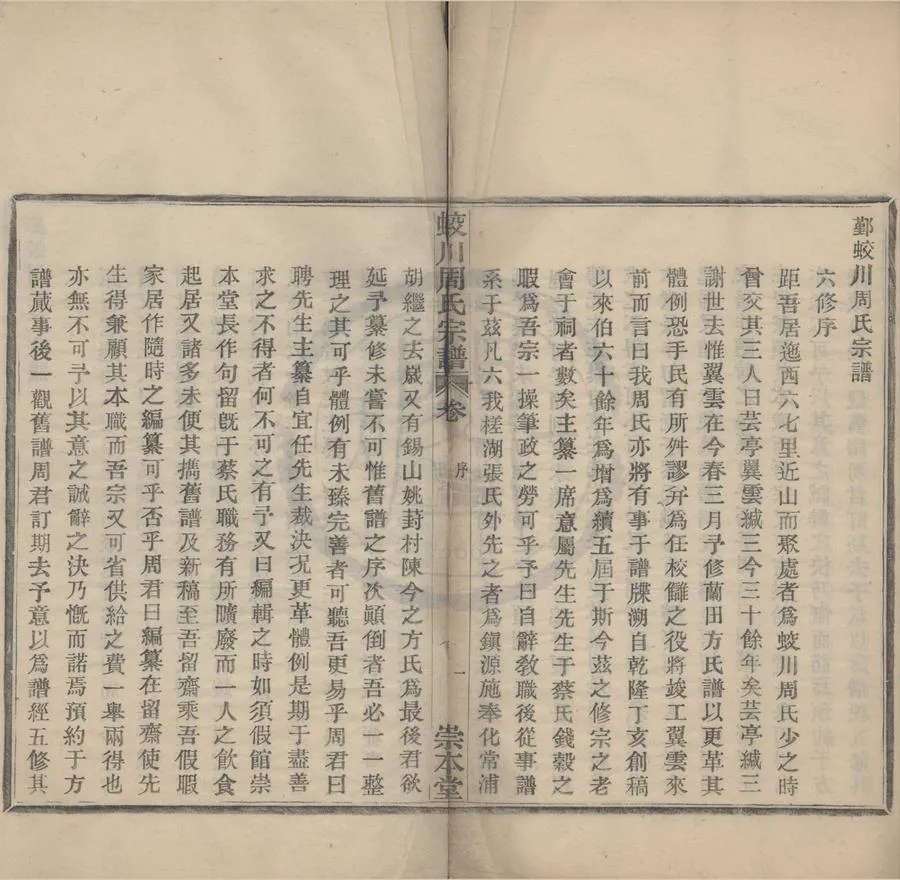 鄞蛟川周氏宗譜
六修序
距吾居迤西六七里近山而聚處者爲蛟川周氏少之時
曾交其三人曰芸亭翼雲緘三今三十餘年矣芸亭緘三
謝世去惟翼雲在今春三月予修蘭田方氏譜以更革其
體例恐手民有所舛謬弁爲任校讎之役將竣工翼雲來
前而言曰我周氏亦將有事于譜牒溯自乾隆丁亥創稿
以來伯六十餘年爲增爲續五屆于斯今茲之修宗之老
會于祠者數矣主纂一席意屬先生先生于蔡氏錢穀之
暇爲吾宗一操筆政之勞可乎予曰自辭敎職後從事譜
系于茲凡六我槎湖張氏外先之者爲鎭源施奉化常浦
蛟川周氏宗譜
卷
序
一
崇本堂
胡繼之去歲又有錫山姚葑村陳今之方氏爲最後君欲
延予纂修未嘗不可惟舊譜之序次顚倒者吾必一一整
理之其可乎體例有未臻完善者可聽吾更易乎周君曰
聘先生主纂自宜任先生裁決况更革體例是期于盡善
求之不得者何不可之有予又曰編輯之時如須假館崇
本堂長作句留旣于蔡氏職務有所曠廢而一人之飮食
起居又諸多未便其攜舊譜及新稿至吾留齋乘吾假暇
家居作隨時之編纂可乎否乎周君曰編纂在留齋使先
生得兼顧其本職而吾宗又可省供給之費一舉兩得也
亦無不可予以其意之誠辭之決乃慨而諾焉預約于方
譜蕆事後一觀舊譜周君訂期去予意以爲譜經五修其